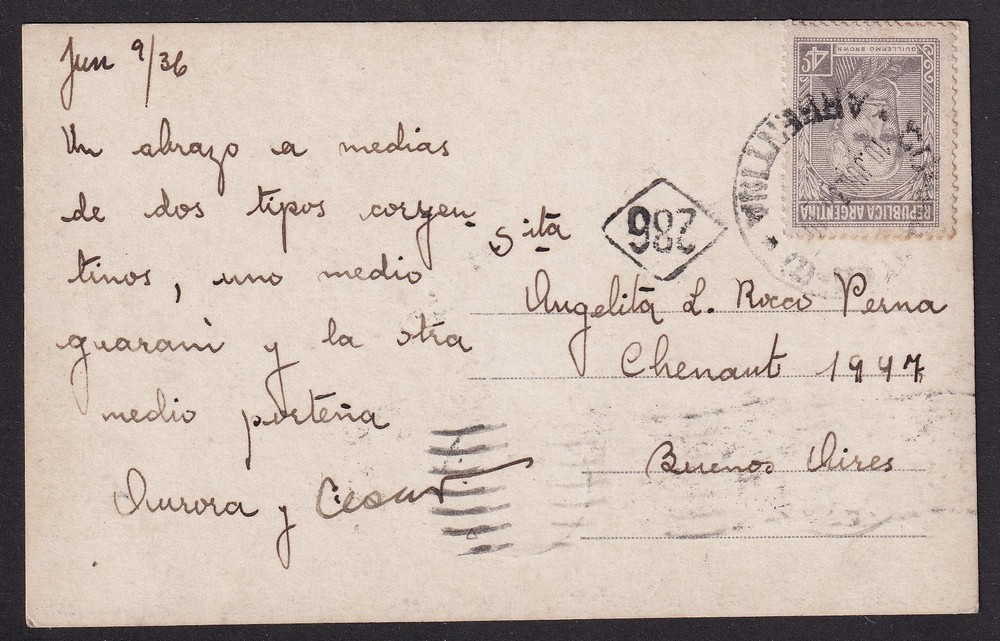 Jun 9/36
Un abrazo a medias
de dos tipos corren-
tinos, uno medio
guarani y la otra
medio porteña
Aurora y
Sita
Angelita L. Rocco Perna
Chenaut 1947
Buenos Aires
286
GUILLERMO BROWN
4c
REPUBLICA ARGENTINA
ARGENTINA